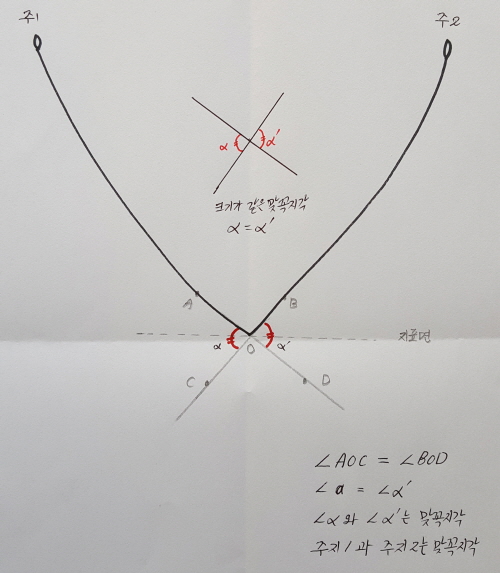 주1
주2
α
α'
크기가 같은 맞꼭지각
α = α'
A
B
지표면
α
O
α'
C
D
∠AOC = ∠BOD
∠a = ∠α'
∠α와 ∠α'는 맞꼭지각
주지1과 주지2는 맞꼭지각